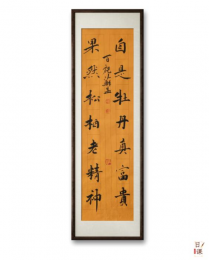 自是牡丹真富貴
果然松柏老精神